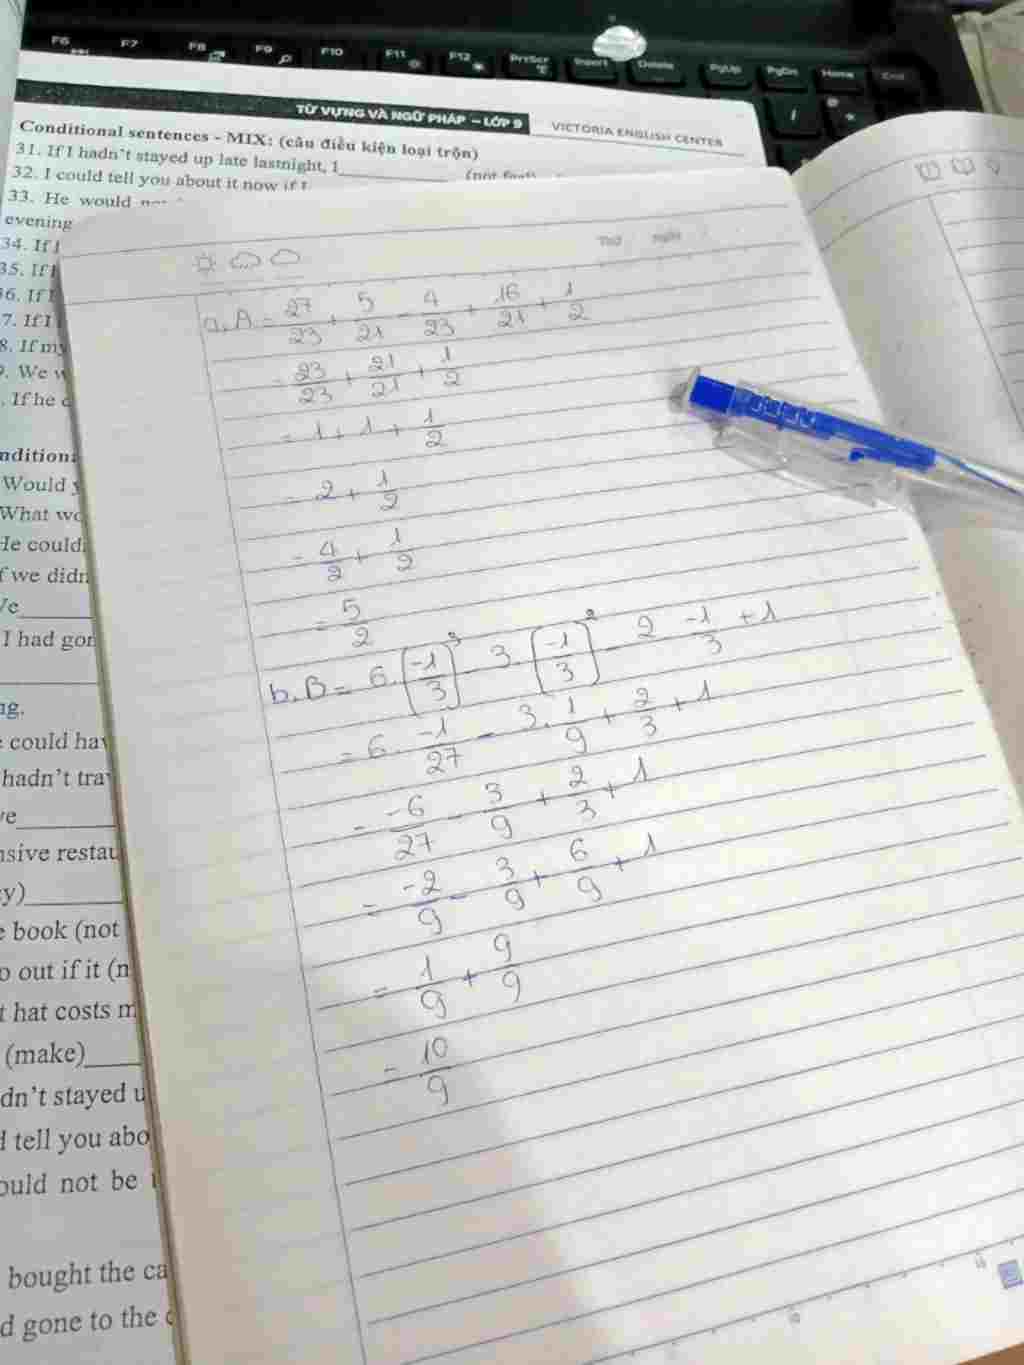 F6 F7 F8 F9 F10 F11 F12 PrtScr Insert Delete PgUp PgDn Home End
TỪ VỰNG VÀ NGỮ PHÁP – LỚP 9
VICTORIA ENGLISH CENTER
Conditional sentences - MIX: (câu điều kiện loại trộn)
31. If I hadn't stayed up late lastnight, I__________ (not feel)
32. I could tell you about it now if I
33. He would
evening
34. If I
35. If I
36. If I
7. If I
8. If my
9. We w
. If he
Would y
What wo
He could
f we didn
Ve______
I had gon
ng.
e could hav
hadn't tra
ve______
nsive restau
y)______
e book (not
o out if it (n
t hat costs m
(make)____
dn't stayed u
d tell you abo
ould not be
bought the ca
d gone to the
Thứ Ngày
a, A = 27/23 + 5/21 - 4/23 + 16/21 + 1/2
= 23/23 + 21/21 + 1/2
= 1 + 1 + 1/2
= 2 + 1/2
= 4/2 + 1/2
= 5/2
b, B = 6.(-1/3)³ - 3.(-1/3)² - 2 -1/3 + 1
= 6. -1/27 - 3. 1/9 + 2/3 + 1
= -6/27 - 3/9 + 2/3 + 1
= -2/9 - 3/9 + 6/9 + 1
= 1/9 + 9/9
= 10/9